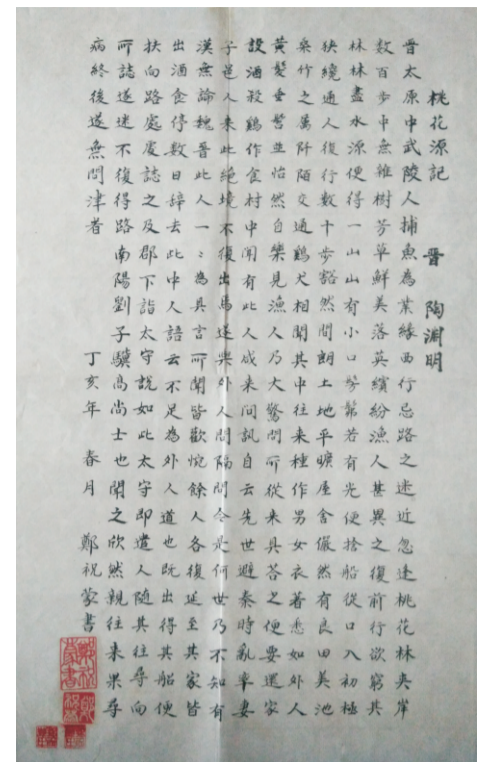 桃花源記 晉 陶淵明
晉太原中武陵人捕魚為業緣西行忘路之迷近忽逢桃花林夾岸
數百步中無雜樹芳草鮮美落英繽紛漁人甚異之復前行欲窮其
林林盡水源便得一山山有小口髣髴若有光便捨船從口入初極
狹纔通人復行數十步豁然開朗土地平曠屋舍儼然有良田美池
桑竹之屬阡陌交通鷄犬相聞其中往来種作男女衣著悉如外人
黃髮垂髫並怡然自樂見漁人乃大驚問所從来具答之便要還家
設酒殺鷄作食村中聞有此人咸来問訊自云先世避秦時亂率妻
子邑人来此絕境不復出焉遂與外人間隔問今是何世乃不知有
漢無論魏晉此人一〻為具言所聞皆歎惋餘人各復延至其家皆
出酒食停數日辭去此中人語云不足為外人道也既出得其船便
扶向路處處誌之及郡下詣太守說如此太守即遣人隨其往尋向
所誌遂迷不復得路南陽劉子驥高尚士也聞之欣然親往来果尋
病終後遂無問津者 丁亥年 春月 鄭祝蒙書